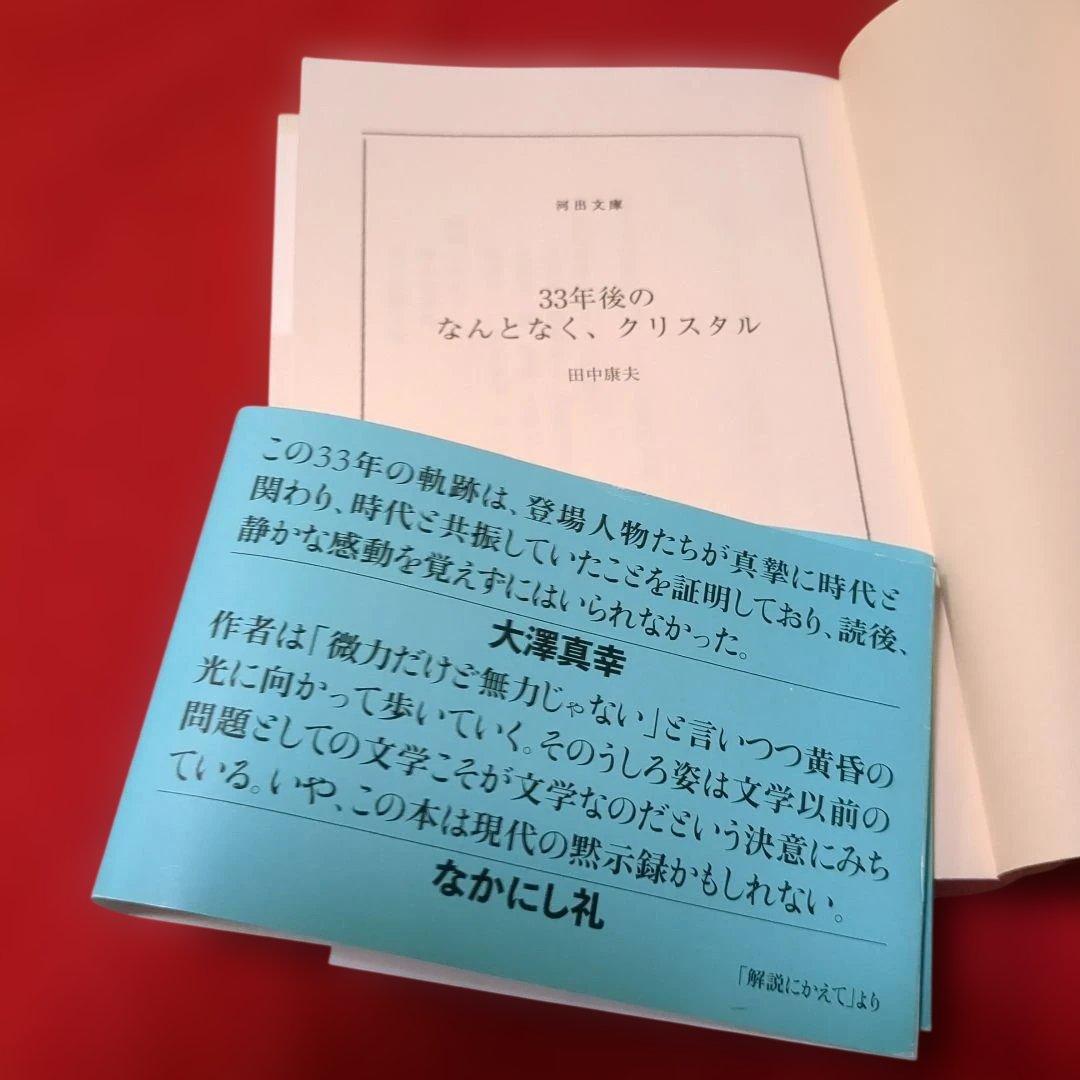 河出文庫
33年後の
なんとなく、クリスタル
田中康夫
この33年の軌跡は、登場人物たちが真摯に時代と
関わり、時代と共振していたことを証明しており、読後、
静かな感動を覚えずにはいられなかった。
大澤真幸
作者は「微力だけど無力じゃない」と言いつつ黄昏の
光に向かって歩いていく。そのうしろ姿は文学以前の
問題としての文学こそが文学なのだという決意にみち
ている。いや、この本は現代の黙示録かもしれない。
なかにし礼
「解説にかえて」より